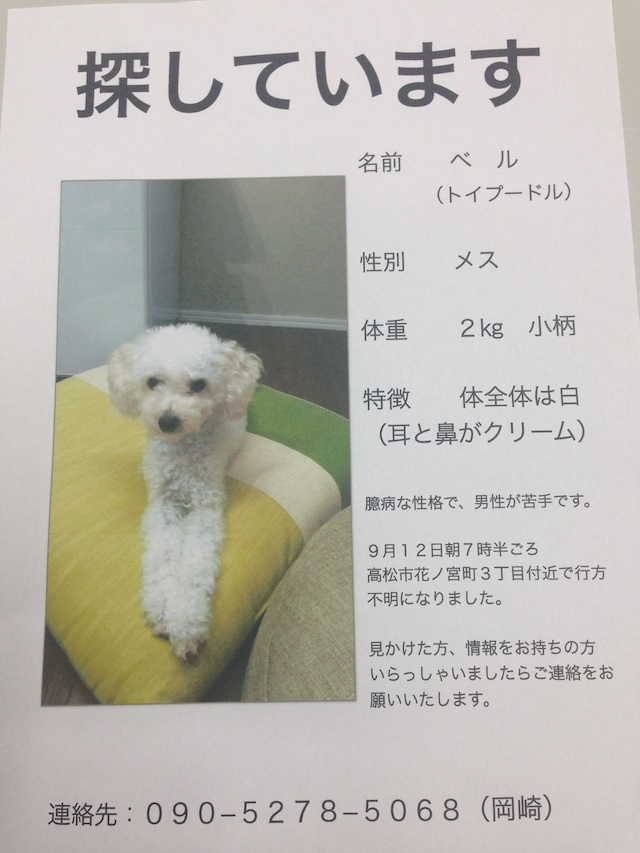 探しています
名前　　ベ　ル
（トイプードル）
性別　　メス
体重　　２kg　小柄
特徴　　体全体は白
（耳と鼻がクリーム）
臆病な性格で、男性が苦手です。
９月１２日朝７時半ごろ
高松市花ノ宮町３丁目付近で行方
不明になりました。
見かけた方、情報をお持ちの方
いらっしゃいましたらご連絡をお
願いいたします。
連絡先：０９０−５２７８−５０６８（岡崎）